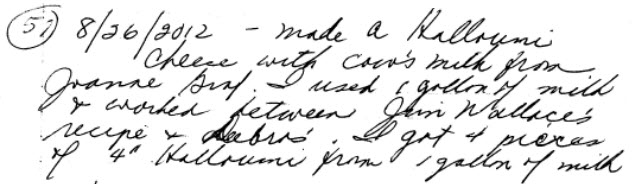 51 8/26/2012 - made a Halloumi
Cheese with cow's milk from
Joanne. I used 1 gallon of milk
& worked between Jim Wallace's
recipe & Debra's. I got 4 pieces
of 4" Halloumi from 1 gallon of milk